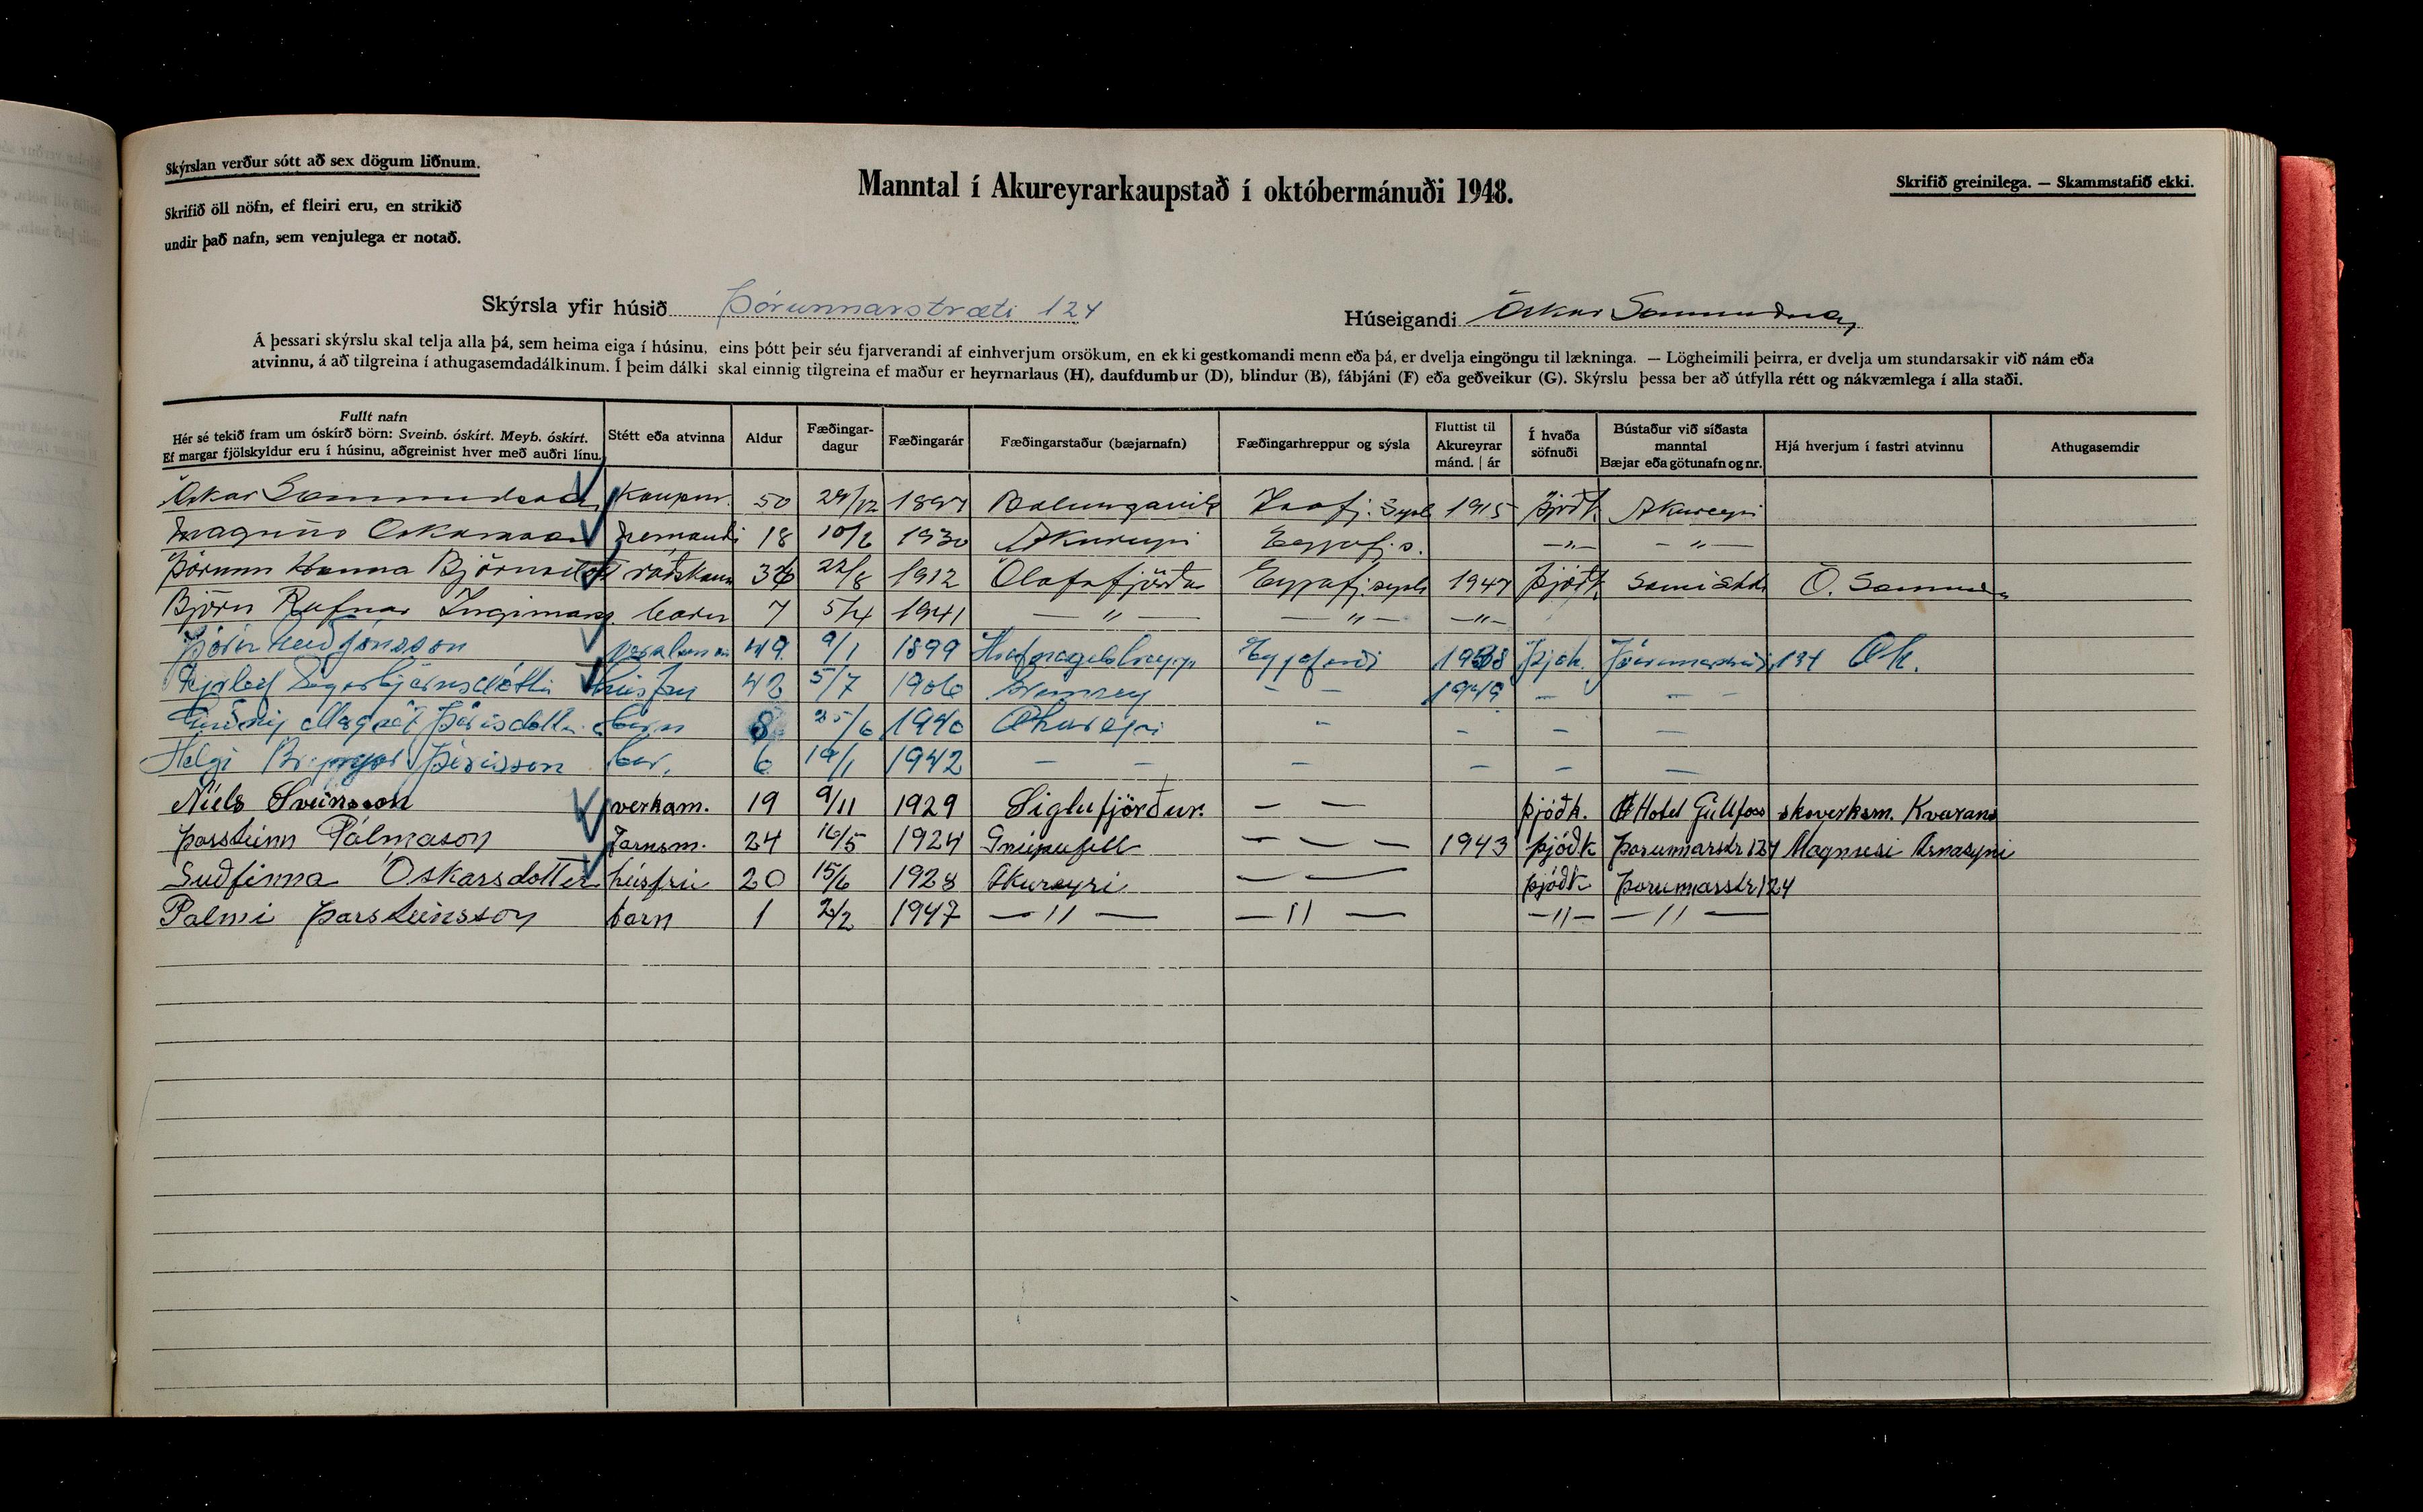 Skýrslan verður sótt að sex dögum liðnum.
Skrifið öll nöfn, ef fleiri eru, en strikið
undir það nafn, sem venjulega er notað.
Manntal í Akureyrarkaupstað í októbermánuði 1948.
Skrifið greinilega. — Skammstafið ekki.
Skýrsla yfir húsið Þórunnarstræti 124
Húseigandi Óskar Sæmundsson
Á þessari skýrslu skal telja alla þá, sem heima eiga í húsinu, eins þótt þeir séu fjarverandi af einhverjum orsökum, en ekki gestkomandi menn eða þá, er dvelja eingöngu til lækninga. — Lögheimili þeirra, er dvelja um stundarsakir við nám eða
atvinnu, á að tilgreina í athugasemdadálkinum. Í þeim dálki skal einnig tilgreina ef maður er heyrnarlaus (H), daufdumbur (D), blindur (B), fábjáni (F) eða geðveikur (G). Skýrslu þessa ber að útfylla rétt og nákvæmlega í alla staði.
Fullt nafn
Hér sé tekið fram um óskírð börn: Sveinb. óskírt. Meyb. óskírt.
Ef margar fjölskyldur eru í húsinu, aðgreinist hver með auðri línu.
Stétt eða atvinna
Aldur
Fæðingar-
dagur
Fæðingarár
Fæðingarstaður (bæjarnafn)
Fæðingarhreppur og sýsla
Fluttist til
Akureyrar
mánd. | ár
Í hvaða
söfnuði
Bústaður við síðasta
manntal
Bæjar eða götunafn og nr.
Hjá hverjum í fastri atvinnu
Athugasemdir
Óskar Sæmundsson kaupm. 50 1897 Bolungavík Ísafj. sýsl 1915 Þjóðk. Akureyri
Magnús Óskarsson nemandi 18 10/2 1930 Akureyri Eyjafj.s. —"— —"—
Þórunn Hanna Björnsdótt ráðskona 36 22/8 1912 Ólafsfjörður Eyjafj.sýsla 1947 Þjóðk Ó. Sæmunds
Björn Rafnar Ingimarss barn 7 5/4 1941 —"— —"— —"—
Jónsson verkamaður 49 9/1 1899 Hrafnagilshrepp Eyjafirði Þjóðk. 124
Sigurbjörnsdóttir húsfrú 42 5/7 1906 — — — — —
Guðný Magnea Þórisdóttir barn 8 25/6 1940 Akureyri — — — —
Helgi Þórisson bar. 6 19/1 1942 — — — — — —
Níels Sveinsson verkam. 19 9/11 1929 Siglufjörður. — — þjóðk. Hotel Gullfoss skoverksm. Kvarans
Þorsteinn Pálmason Jarnsm. 24 16/5 1924 Gnúpufell — — — 1943 þjóðk Þorunnarstr 124 Magnusi Arnasyni
Guðfinna Óskarsdottir húsfrú 20 15/6 1928 Akureyri — — þjóðk Þorunnarstr 124
Palmi Þorsteinsson barn 1 2/2 1947 —"— —"— —"— —"—